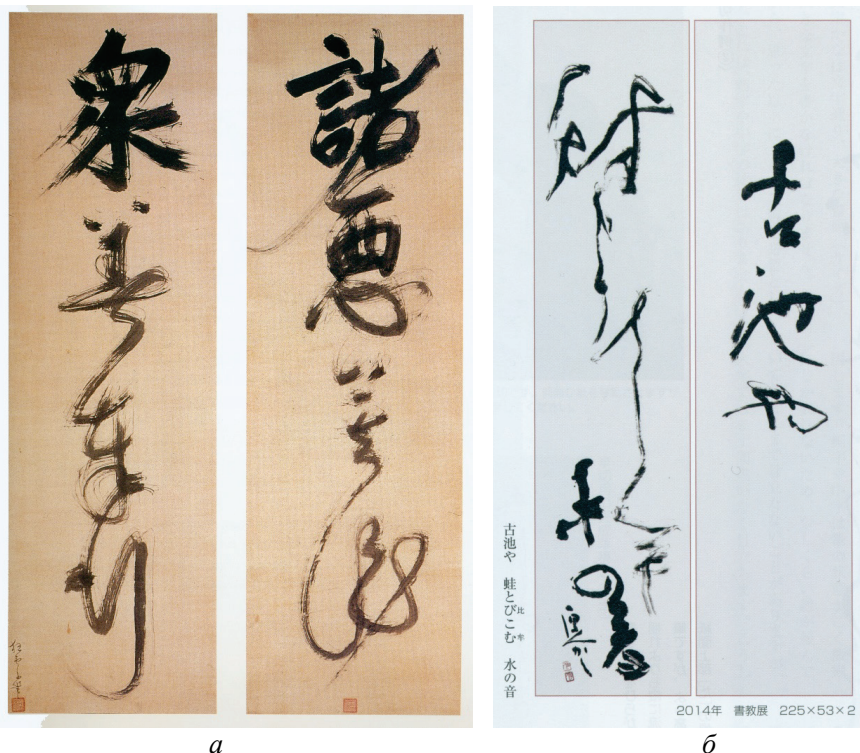 諸悪莫作
衆善奉行
а
古池や
蛙とび比こ牟
水の音
古池や 蛙とびこむ 水の音
比 牟
2014年 書教展 225×53×2
б